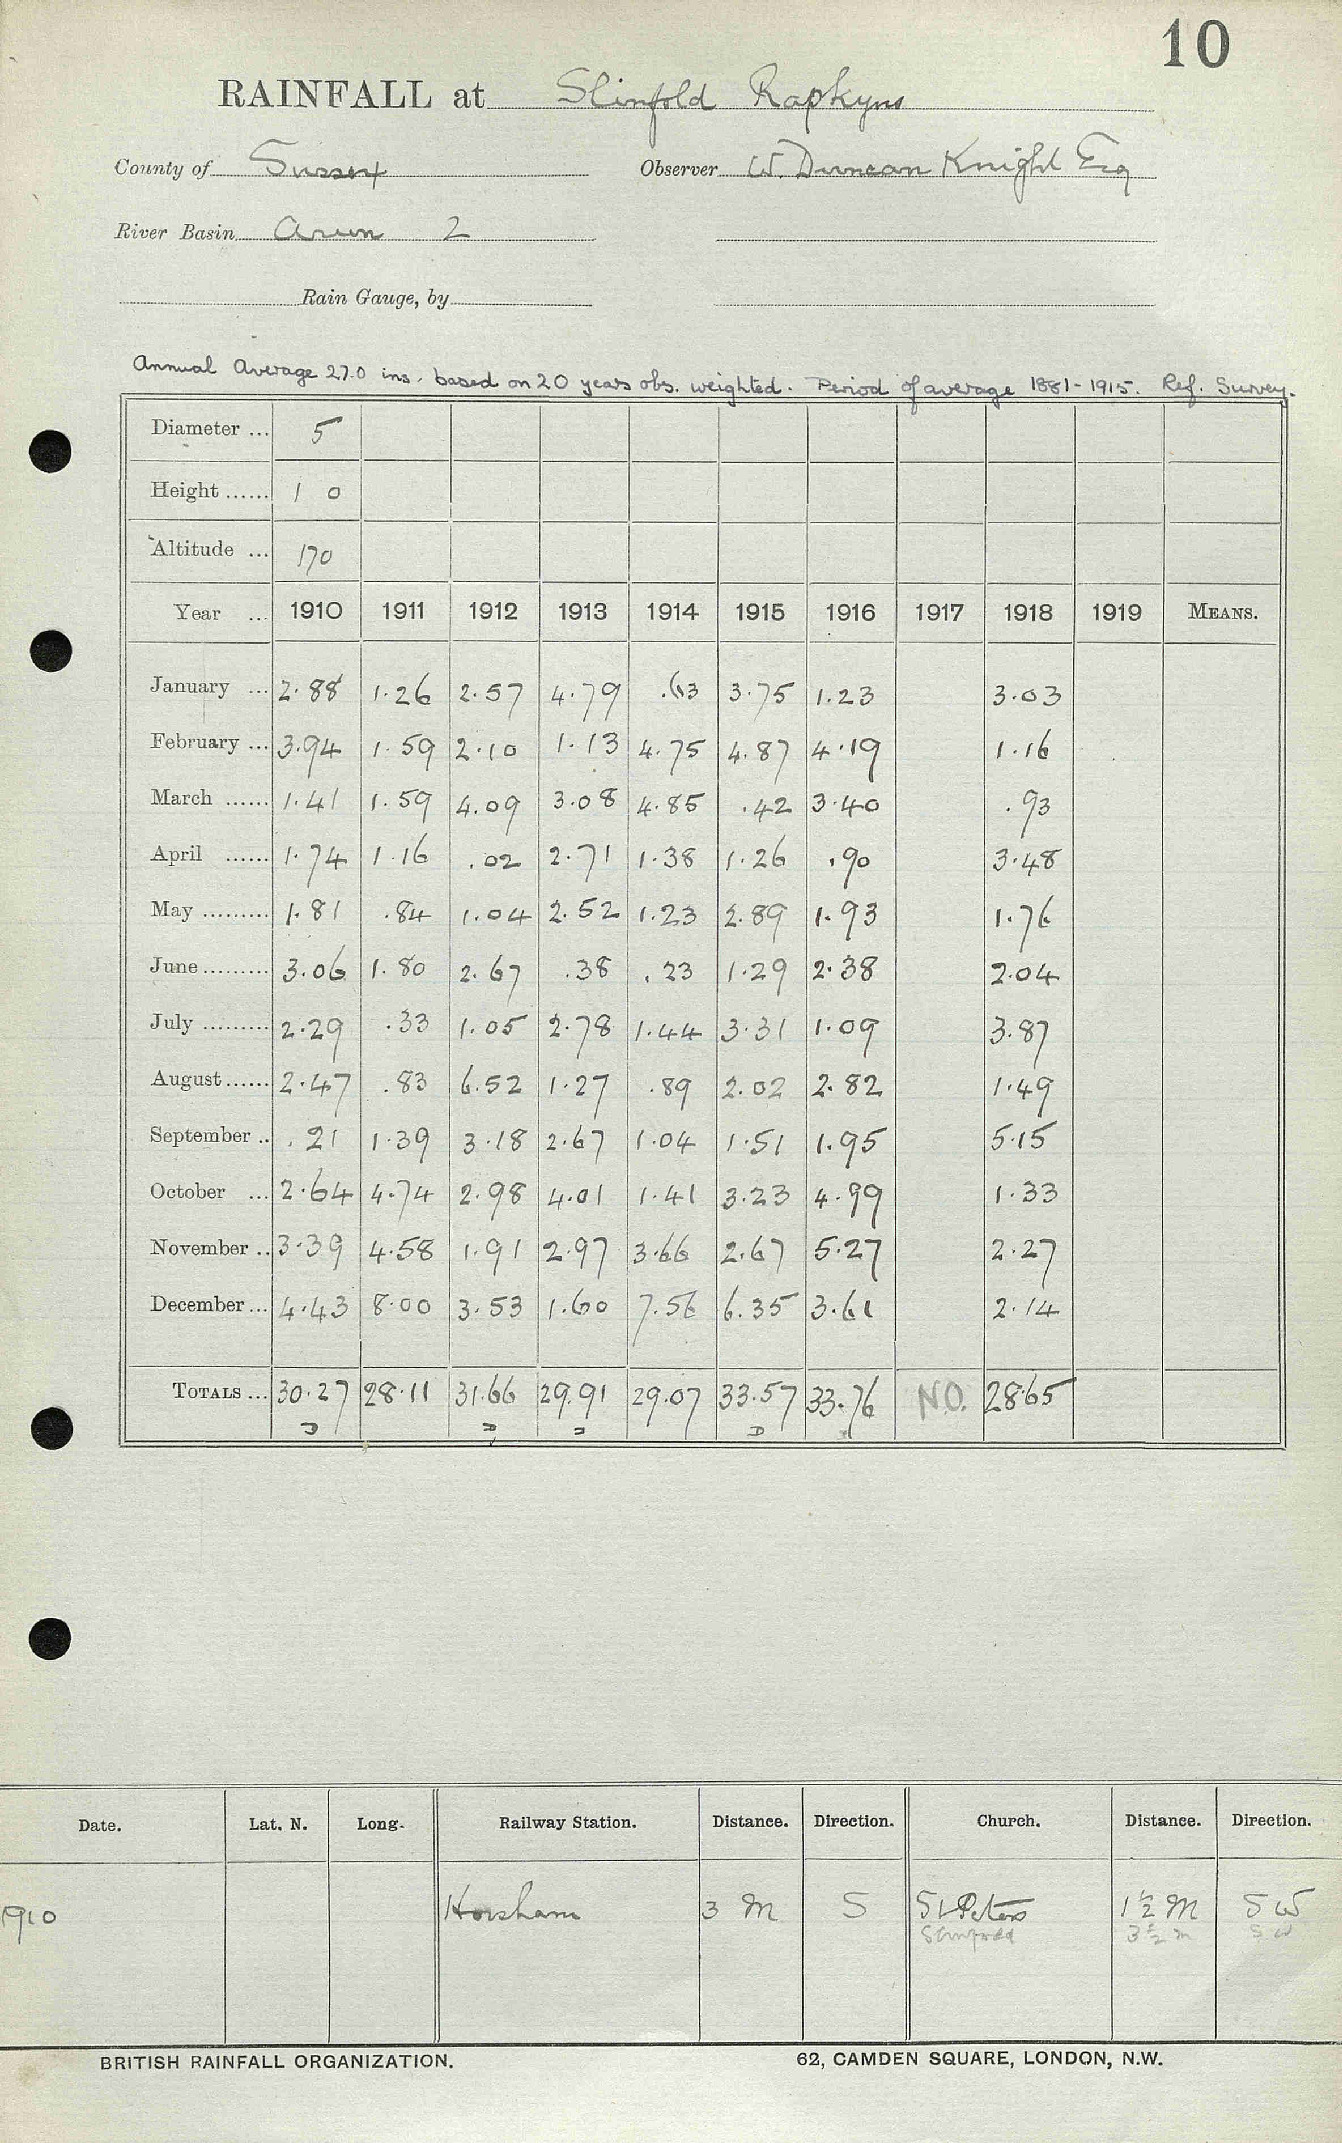 10
RAINFALL at Slinfold Rapkyns
County of Sussex Observer W. Duncan Knight Esq
River Basin Arun 2
Rain Gauge, by
Annual Average 27.0 ins. based on 20 years obs. weighted. Period of average 1881-1915. Ref. Survey.
Diameter ... 5
Height ...... 1 0
Altitude ... 170
Year ... 1910 1911 1912 1913 1914 1915 1916 1917 1918 1919 MEANS.
January ... 2.88 1.26 2.57 4.79 .63 3.75 1.23 3.03
February ... 3.94 1.59 2.10 1.13 4.75 4.87 4.19 1.16
March ...... 1.41 1.59 4.09 3.08 4.85 .42 3.40 .93
April ...... 1.74 1.16 .02 2.71 1.38 1.26 .90 3.48
May ......... 1.81 .84 1.04 2.52 1.23 2.89 1.93 1.76
June ......... 3.06 1.80 2.67 .38 .23 1.29 2.38 2.04
July ......... 2.29 .33 1.05 2.78 1.44 3.31 1.09 3.87
August ...... 2.47 .83 6.52 1.27 .89 2.02 2.82 1.49
September .. .21 1.39 3.18 2.67 1.04 1.51 1.95 5.15
October ... 2.64 4.74 2.98 4.01 1.41 3.23 4.99 1.33
November .. 3.39 4.58 1.91 2.97 3.66 2.67 5.27 2.27
December ... 4.43 8.00 3.53 1.60 7.56 6.35 3.61 2.14
TOTALS ... 30.27 28.11 31.66 29.91 29.07 33.57 33.76 N.O. 28.65
D D D D
Date. Lat. N. Long. Railway Station. Distance. Direction. Church. Distance. Direction.
1910 Horsham 3 M S St Peters 1½ M SW
Slinfold 3½ m SW
BRITISH RAINFALL ORGANIZATION. 62, CAMDEN SQUARE, LONDON, N.W.